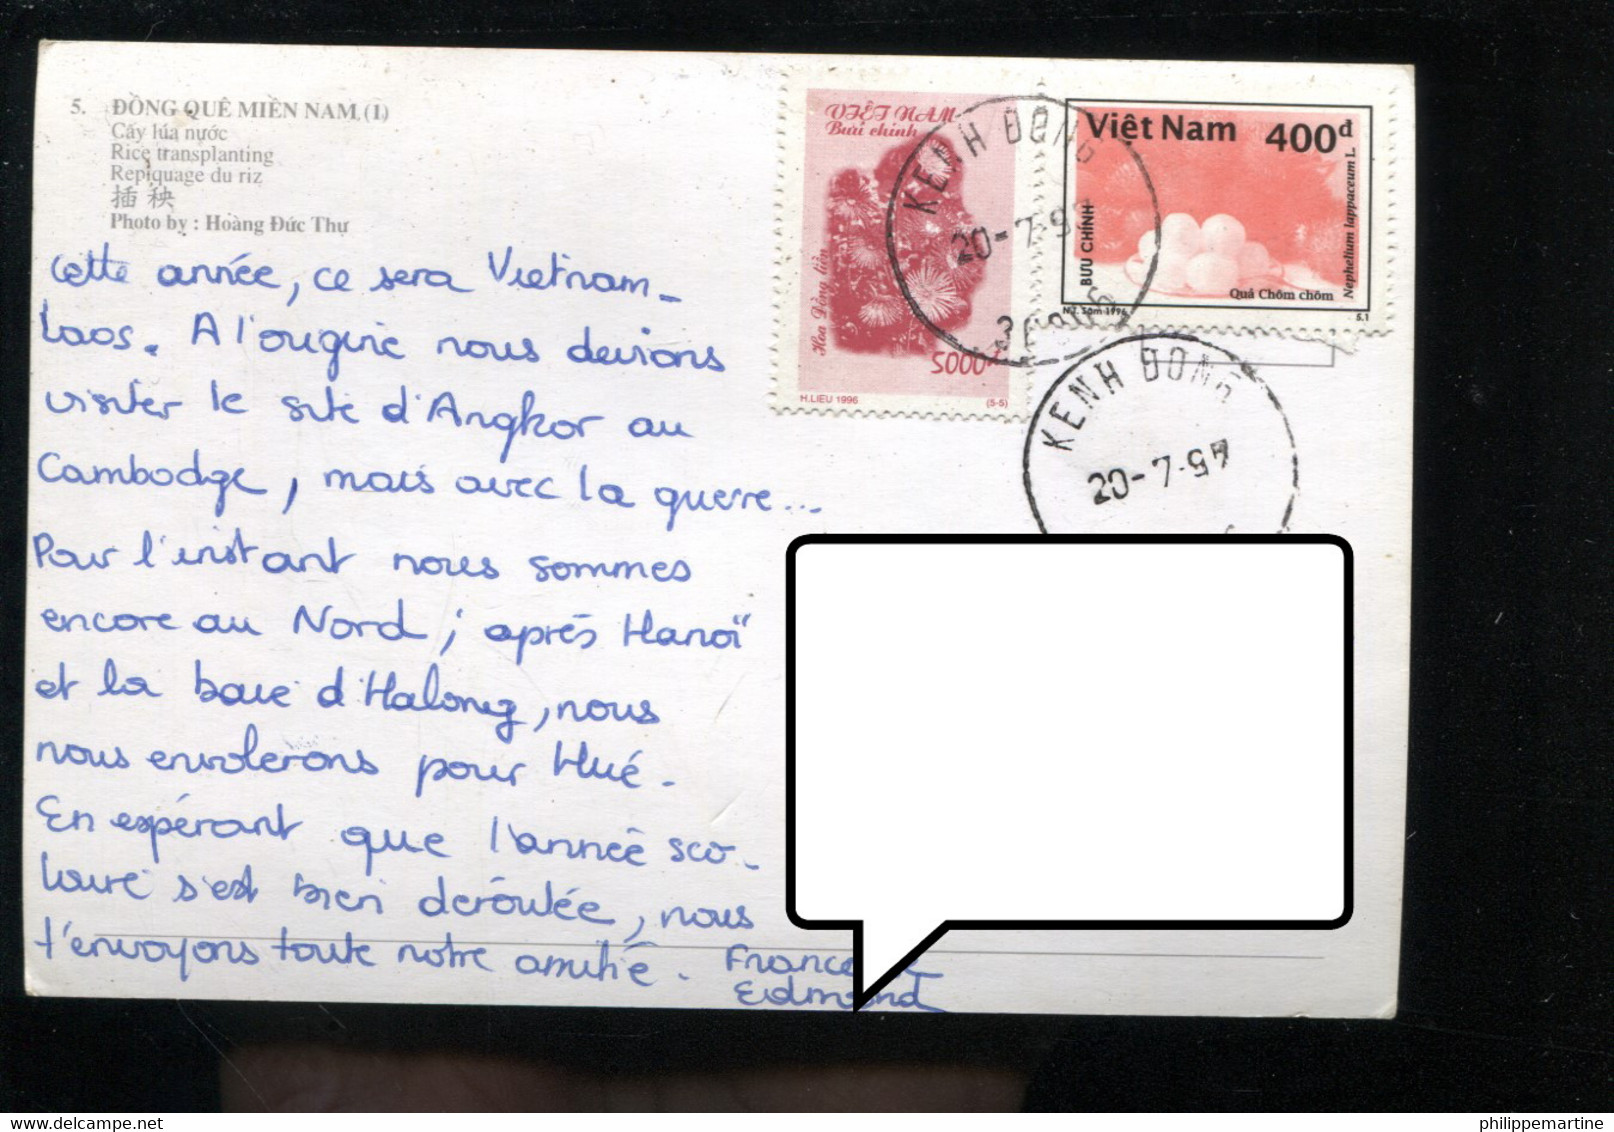 5. ĐỒNG QUÊ MIỀN NAM (1)
Cấy lúa nước
Rice transplanting
Repiquage du riz
插秧
Photo by : Hoàng Đức Thự
VIỆT NAM
Bưu chính
Hoa Đồng tiền
5000đ
H.LIEU 1996
(5-5)
Việt Nam 400đ
BƯU CHÍNH
Nephelium lappaceum L.
Quả Chôm chôm
5.1
KENH DONG
20-7-97
KENH DONG
20-7-97
Cette année, ce sera Vietnam-
Laos. A l'origine nous devions
visiter le site d'Angkor au
Cambodge, mais avec la guerre...
Pour l'instant nous sommes
encore au Nord ; après Hanoï
et la baie d'Halong, nous
nous envolerons pour Hué.
En espérant que l'année sco-
laire s'est bien déroulée, nous
t'envoyons toute notre amitié.
Edmond
philippemartine